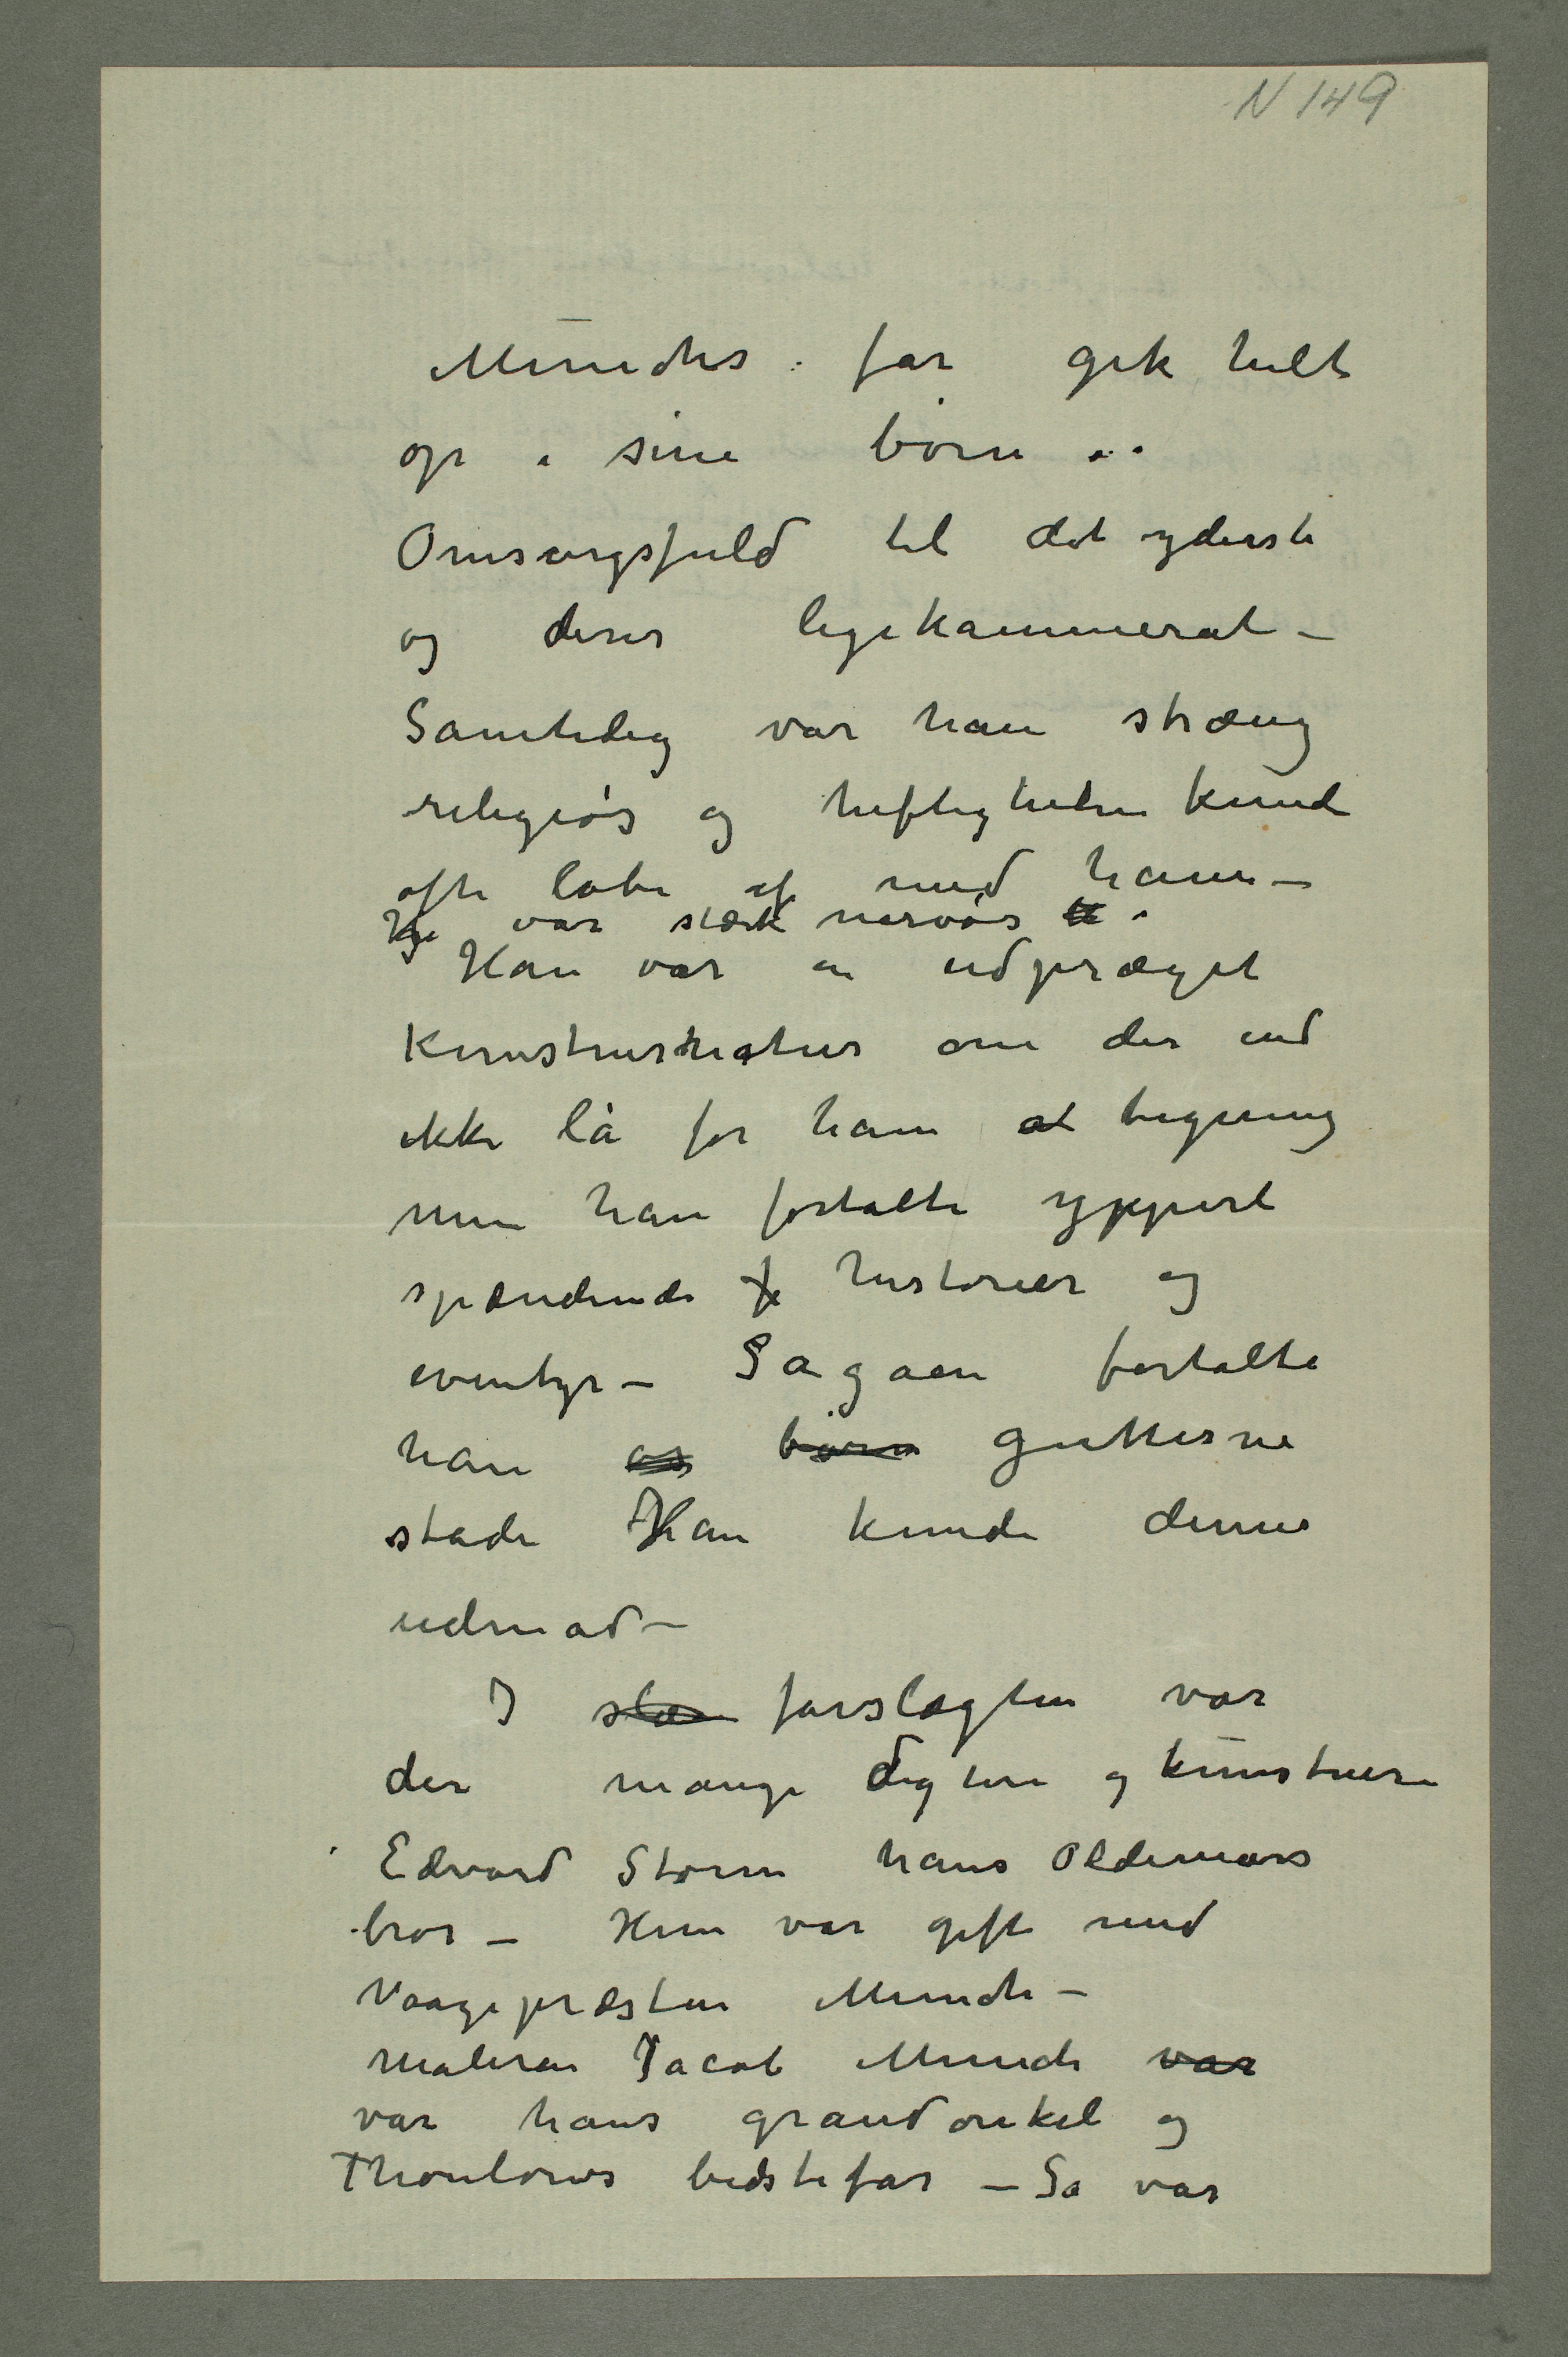 N 149
Munchs far gik helt
op i sine børn ..
Omsorgsfuld til det yderste
og deres legekammerat –
Samtidig var han stræng
religiøs og heftigheden kunde
ofte løbe af med ham –
var stærk nervøs
Han var en udpræget
kunstnernatur om der end
ikke lå for ham at tegning
men han fortalte yppert
spændende f historier og
eventyr – Sagaen fortalte
han os børn gutterne
stadi Han kunde denne
udenad –
I slæ farslægten var
der mange digtere og kunstnere
Edvard Storm hans Oldemors
bror – Hun var gift med
Vaagepræsten Munch –
maleren Jacob Munch var
var hans grandonkel og
Thaulows bedstefar – Så var